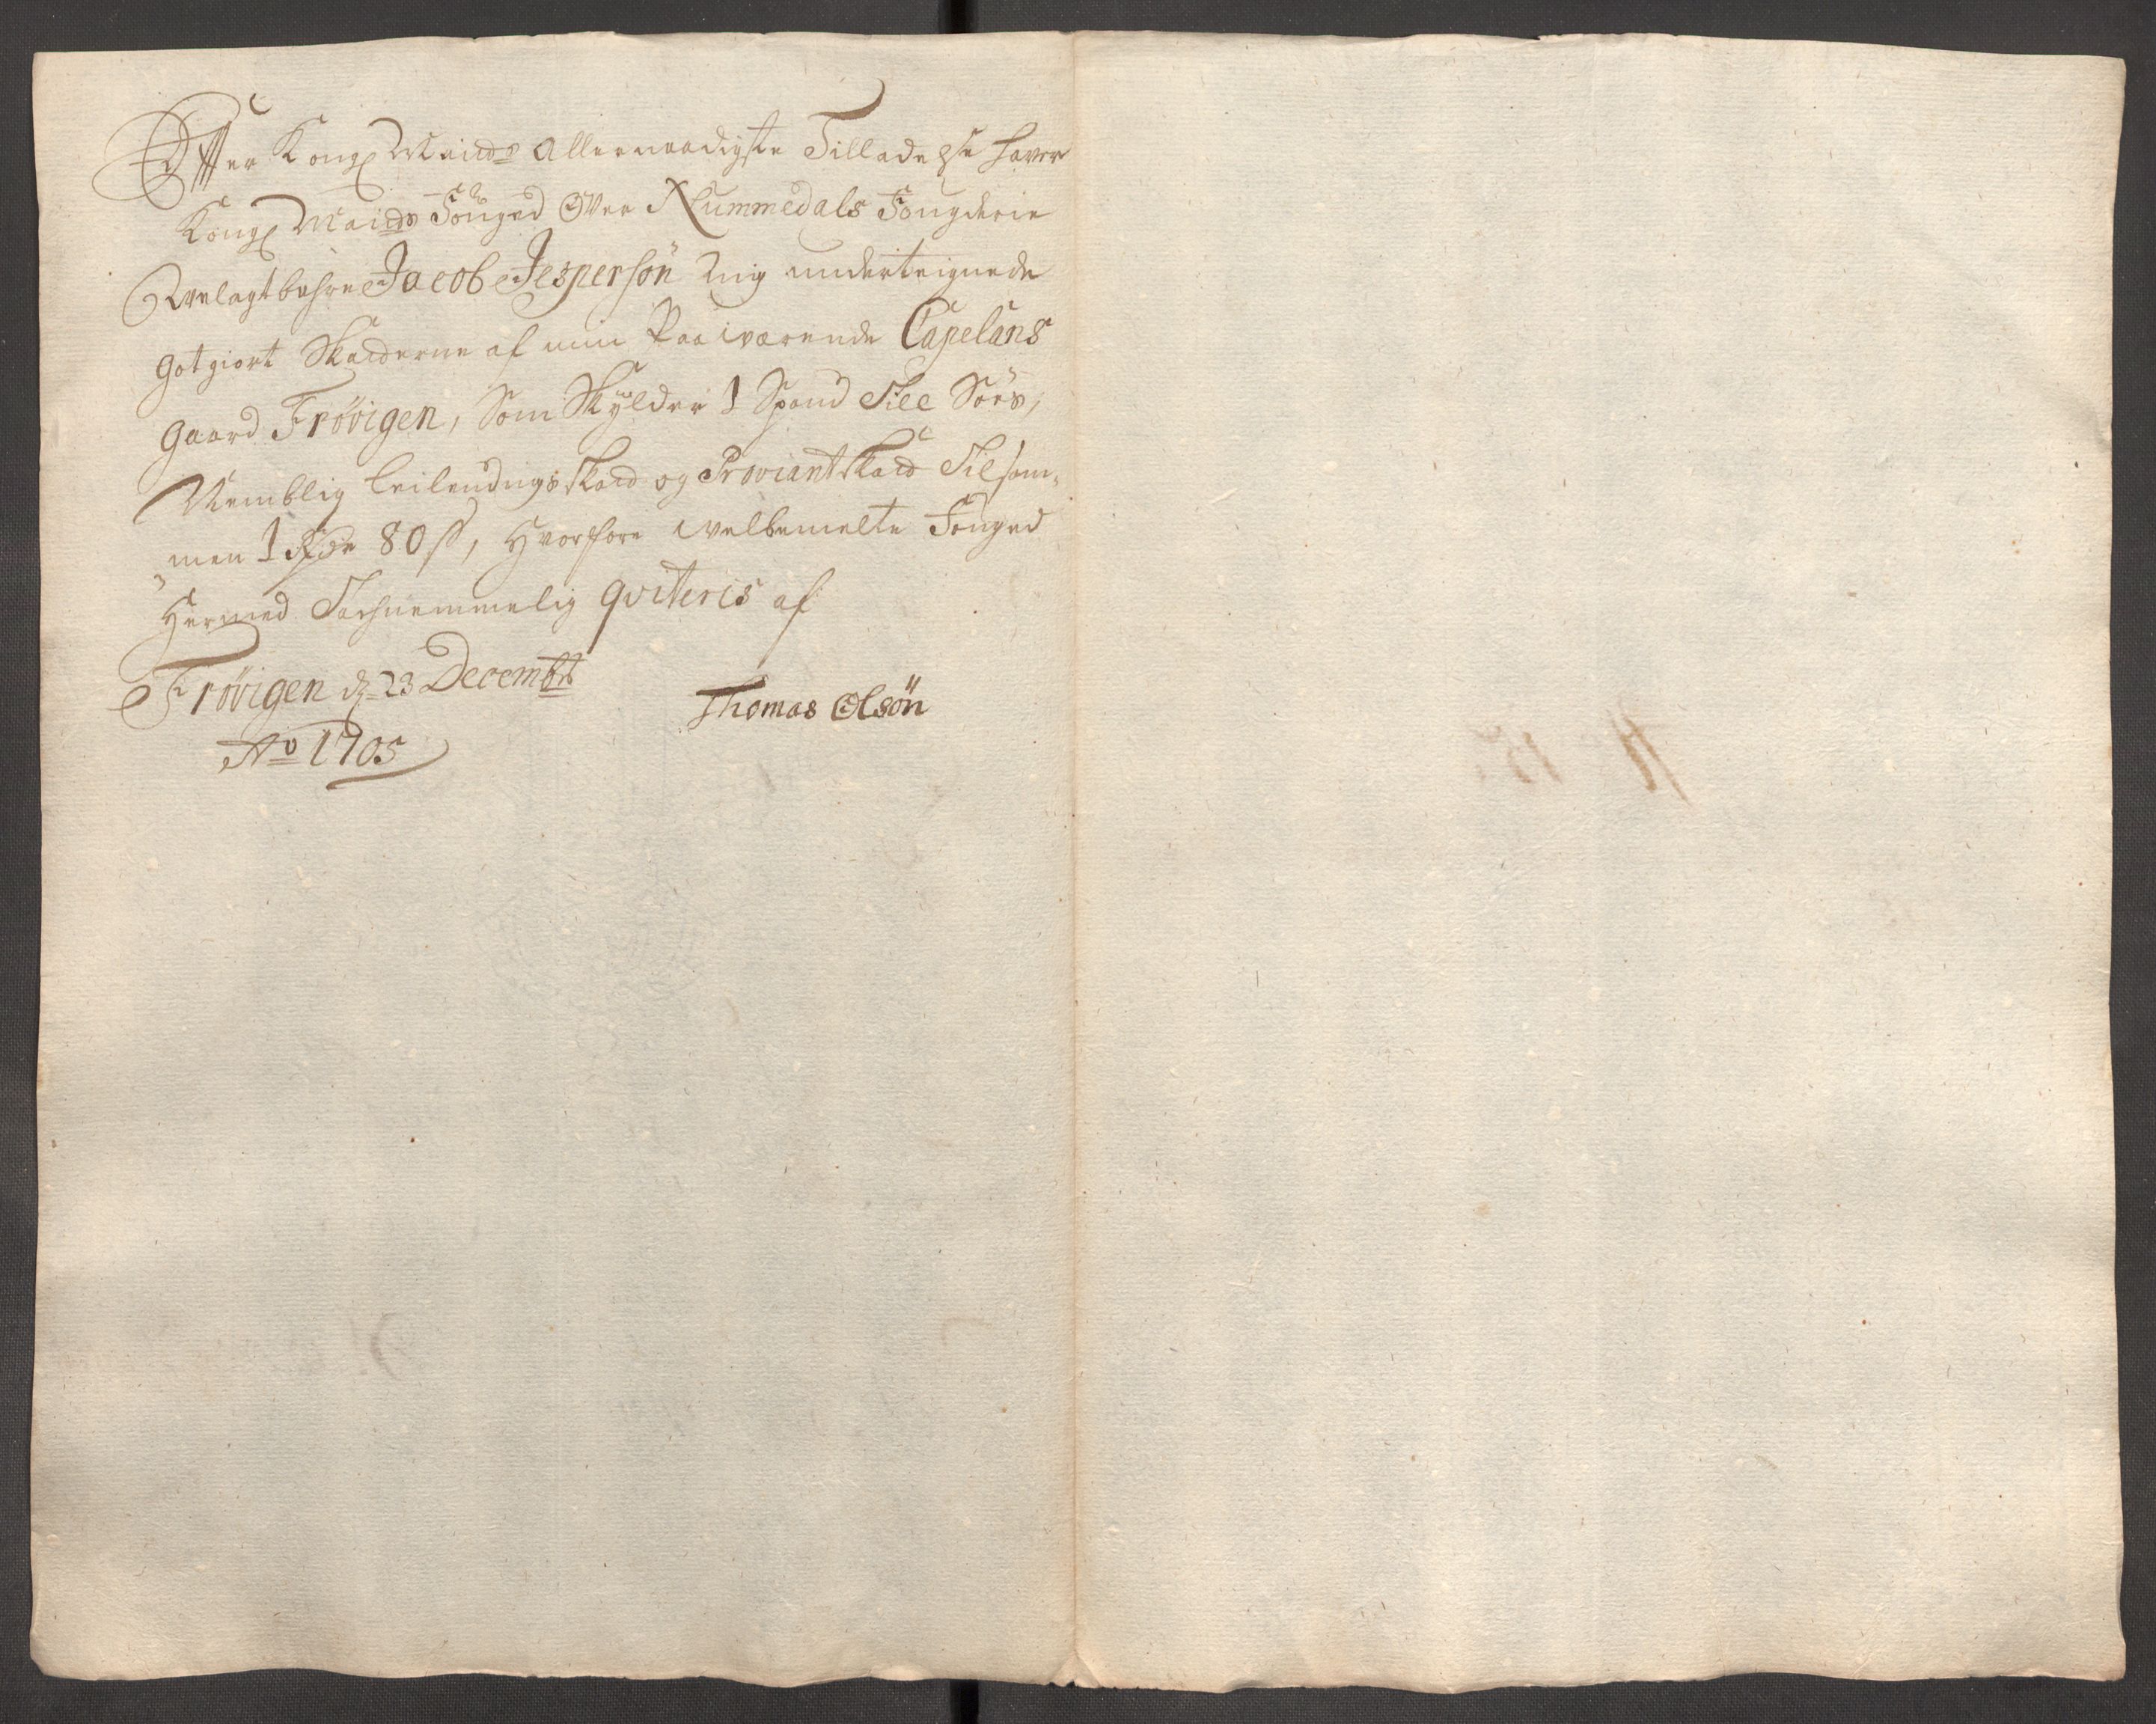 Effter Kongl Maits Allernaadigste Tilladelse haver
Kongl Maits Fouged Over Nummedals Fougderie
Velagtbahre Jacob Jespersön Mig underteignede
gotgiort Skatterne af min Paaværende Capelans
gaard Frövigen, Som Skylder 1 Spand
Nemblig Leilendings Skatt og Proviant Skatt Tilsam„
„men 1 Rdr 80 ß, Hvorfore velbemelte Fouged
Hermed qviteris af
Frövigen d. 23 Decembr
Ao 1705
Thomas Olsön